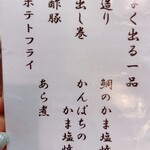 く出る一品
造り
鯛のかま塩焼
出し巻
かんぱちの
かま塩焼
酢豚
あら煮
ポテトフライ